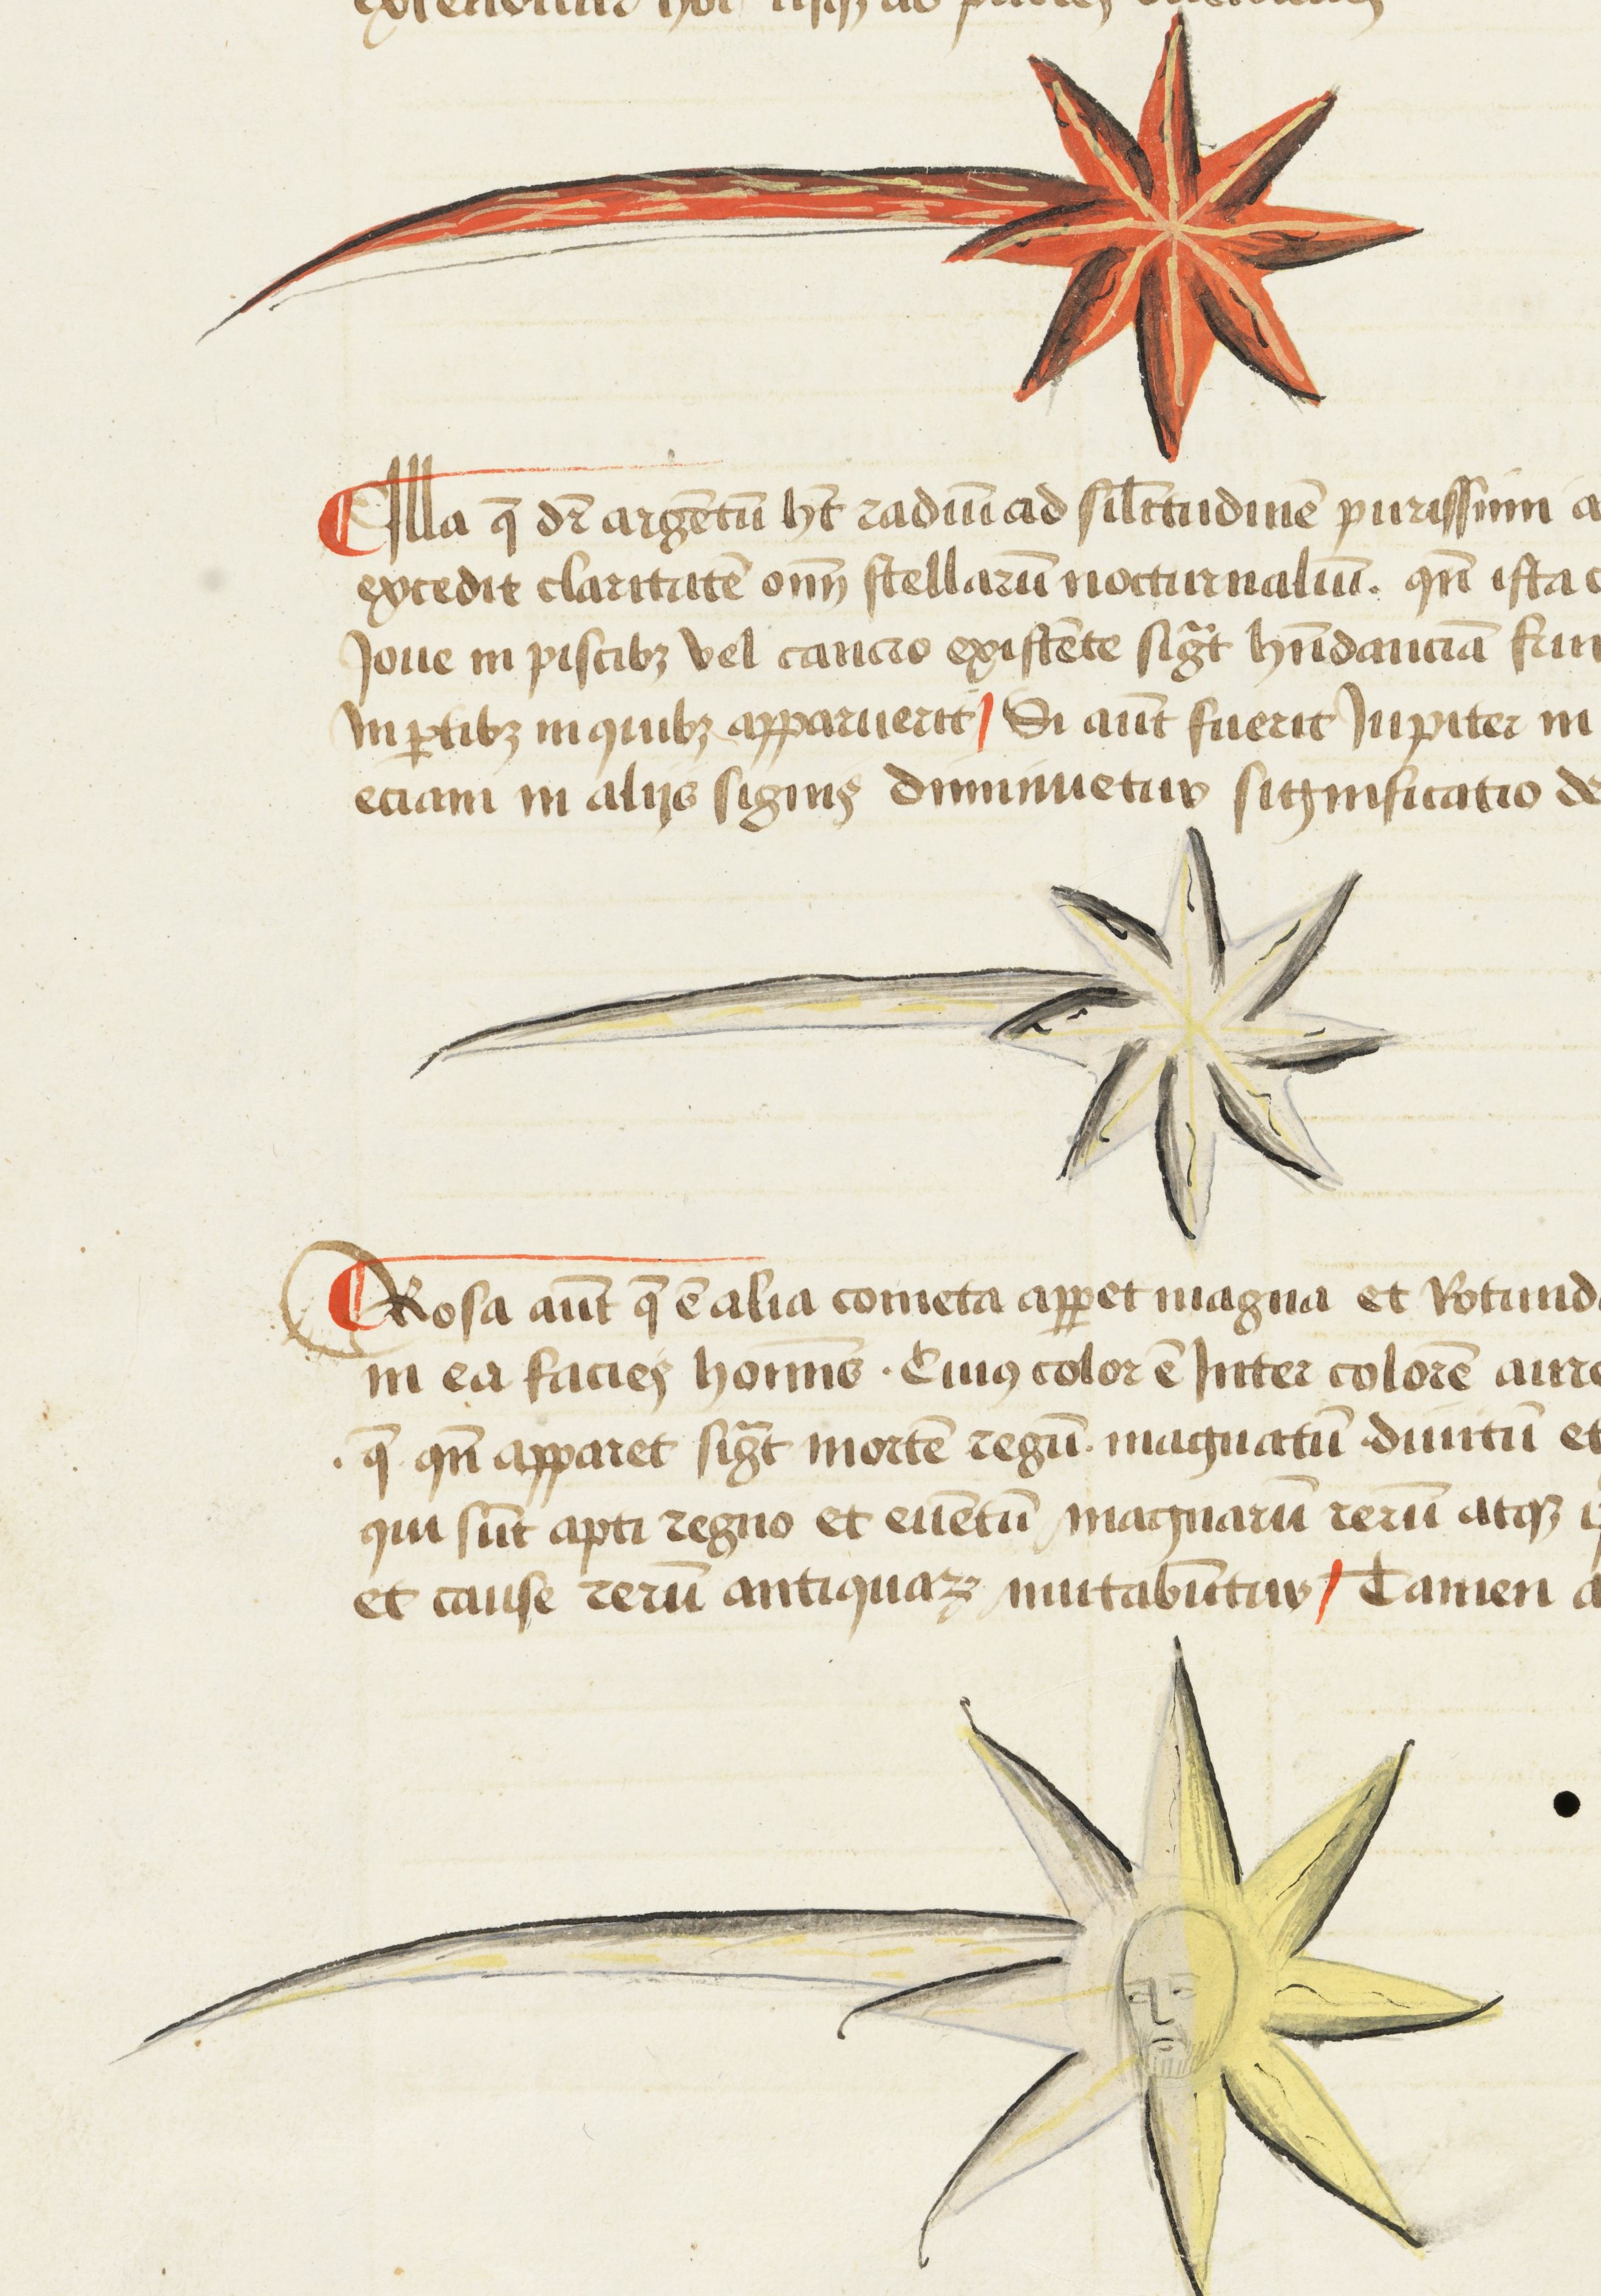 Illa q̄ dr̄ argētū hт̄ radiū ad silr̄tudinē purissimi a
excedit claritatē om̄ stellarū nocturnaliū. qn̄ ista c
Joue in piscibꝫ vel cancro existēte sigt̄ hn̄danciā
In ꝑtibꝫ in quibꝫ apparuerit / Si aūt fuerit Jupiter in
eciam in alijs signis diminuetur significatio de
Rosa aūt q̄ ē alia cometa apꝑet magna et Rotund
in ea facies hoīnis . Eiusꝰ color ē Inter colorē aure
. q̄ qn̄ apparet sigt̄ mortē regū . magnatū . diuitū et
qui sūt apti regno et euētū magnarū rerū atqꝫ
et cause rerū antiquaꝝ mutabūtur / Tamen a